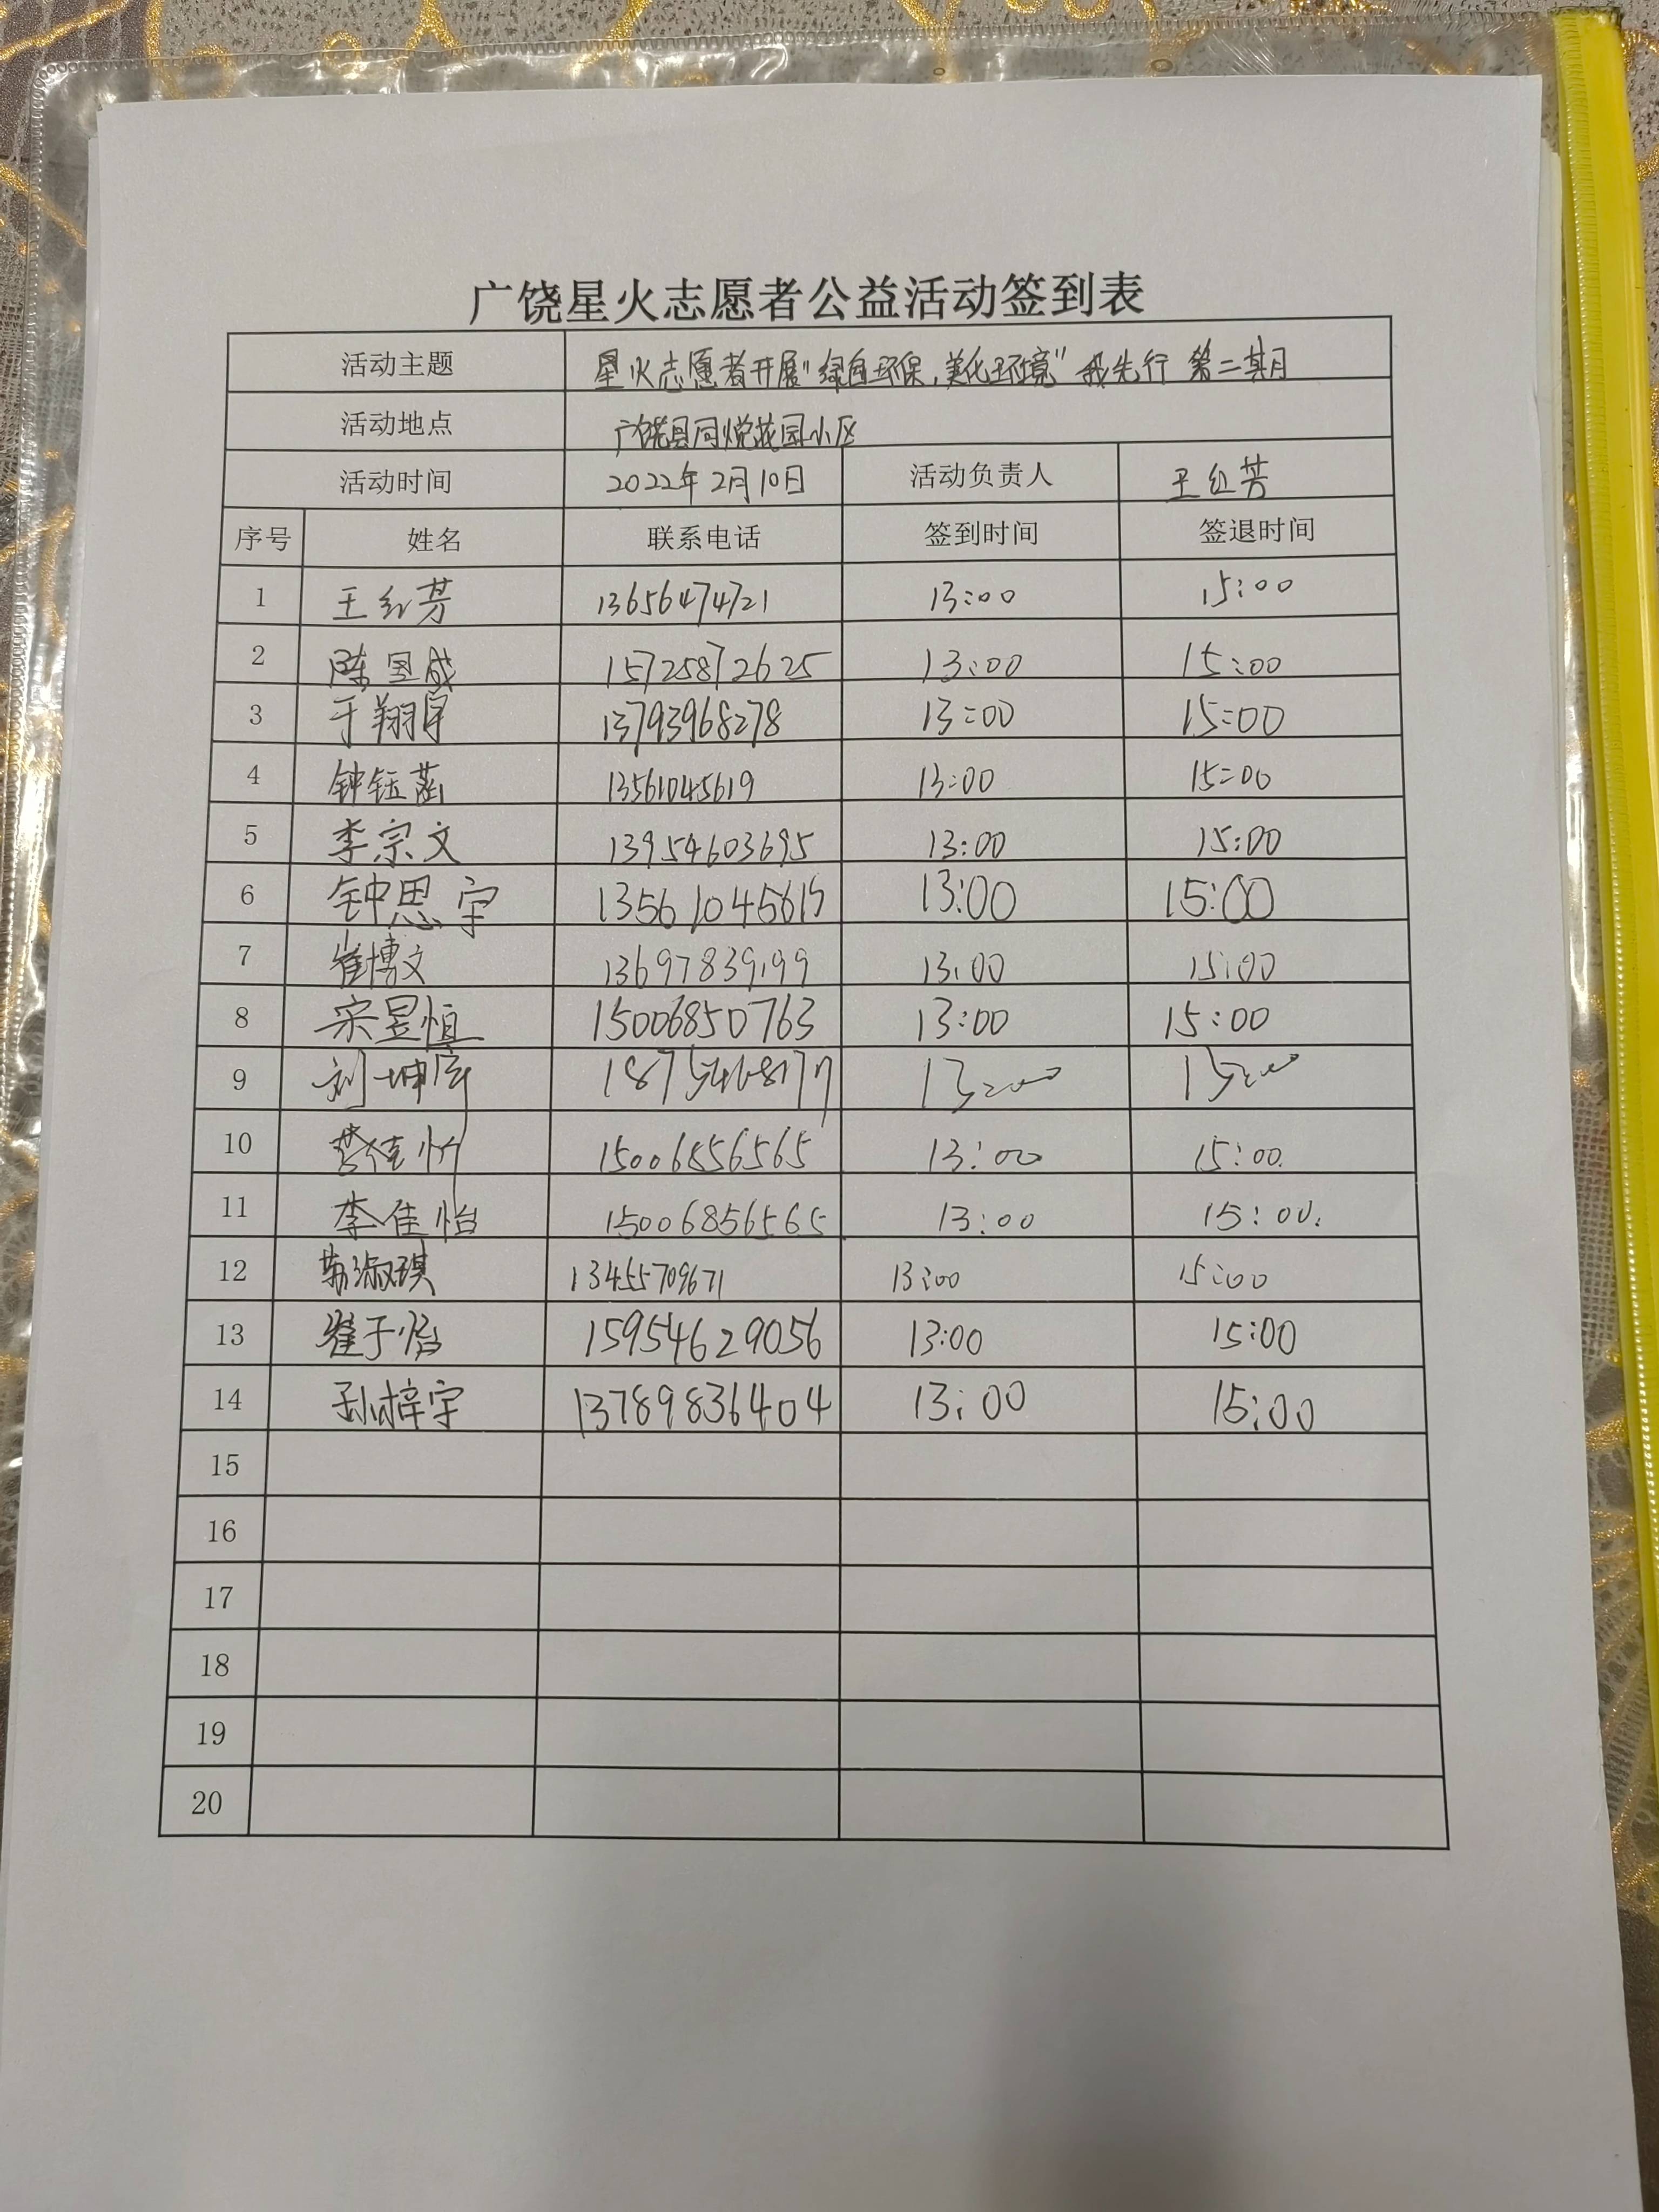 广饶星火志愿者公益活动签到表
活动主题 星火志愿者开展"绿色环保,美化环境"我先行 第二期
活动地点 广饶县同悦花园小区
活动时间 2022年2月10日 活动负责人 王红芳
序号 姓名 联系电话 签到时间 签退时间
1 王红芳 13656474721 13:00 15:00
2 陈昱成 15725872625 13:00 15:00
3 于翔宇 13793968278 13:00 15:00
4 钟钰菡 13561045619 13:00 15:00
5 李宗文 13954603695 13:00 15:00
6 钟思宇 13561045619 13:00 15:00
7 崔博文 13697839199 13:00 15:00
8 宋昱恒 15006850763 13:00 15:00
9 刘坤 13:00 15:00
10 15006856565 13:00 15:00.
11 李佳怡 15006856565 13:00 15:00.
12 苏淑琪 13455709671 13:00 15:00
13 崔子怡 15954629056 13:00 15:00
14 孙梓宇 13789836404 13:00 15:00
15
16
17
18
19
20